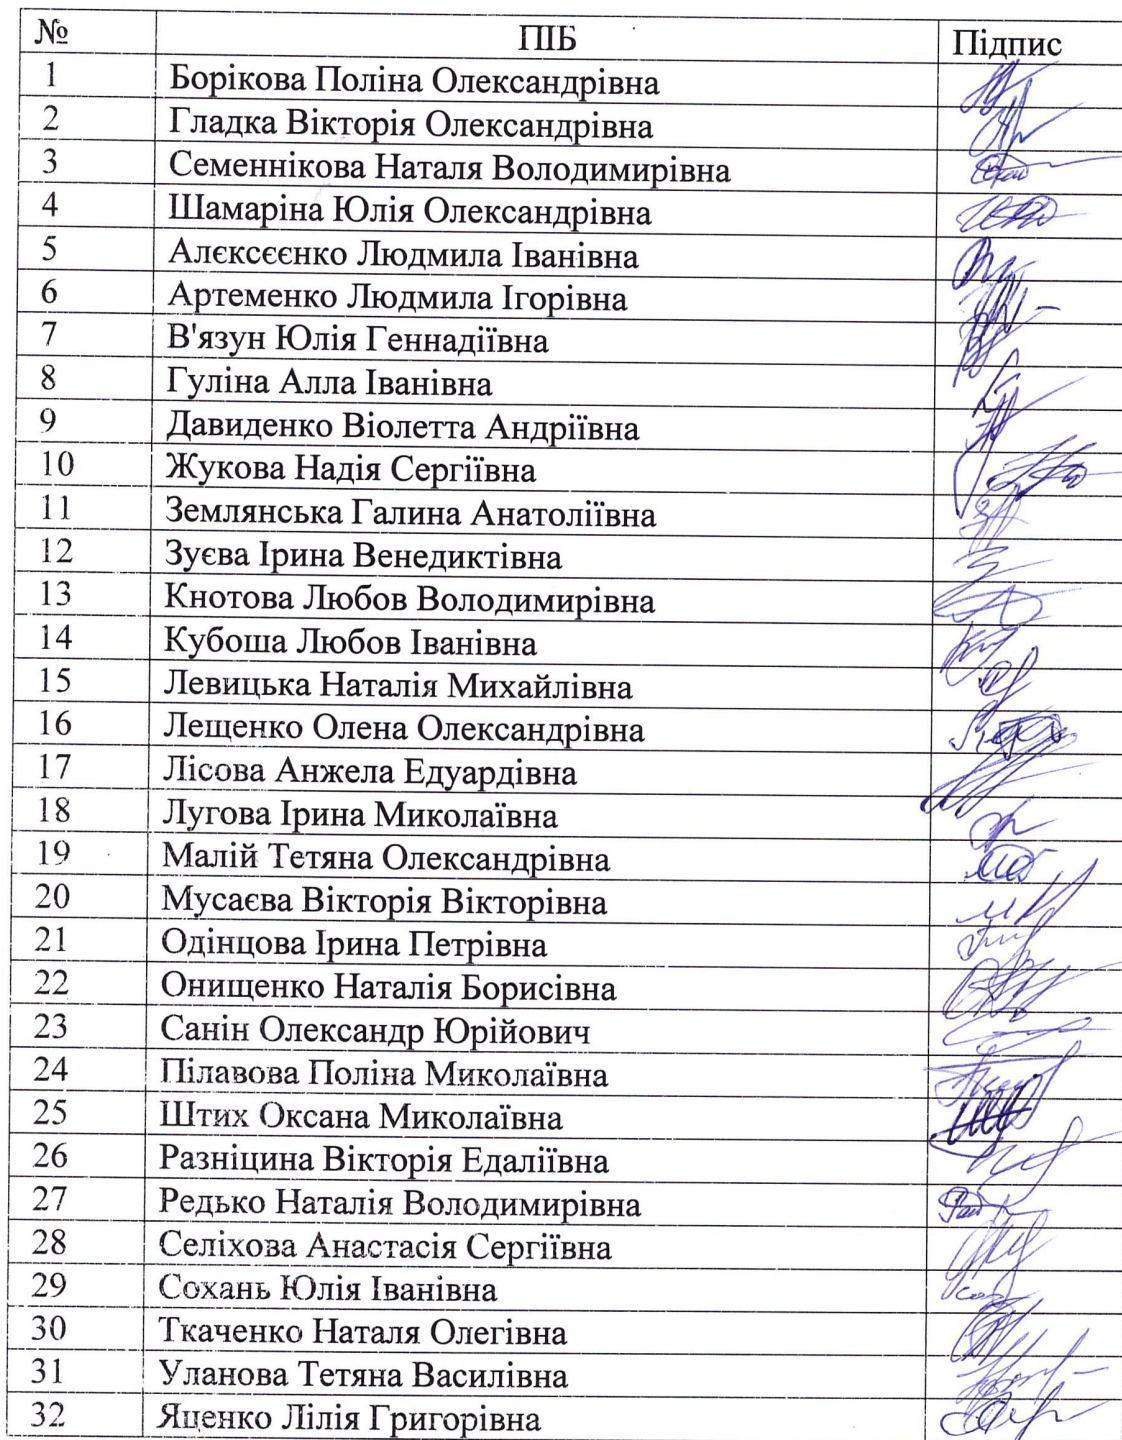 № ПІБ Підпис
1 Борікова Поліна Олександрівна
2 Гладка Вікторія Олександрівна
3 Семеннікова Наталя Володимирівна
4 Шамаріна Юлія Олександрівна
5 Алєксєєнко Людмила Іванівна
6 Артеменко Людмила Ігорівна
7 В'язун Юлія Геннадіївна
8 Гуліна Алла Іванівна
9 Давиденко Віолетта Андріївна
10 Жукова Надія Сергіївна
11 Землянська Галина Анатоліївна
12 Зуєва Ірина Венедиктівна
13 Кнотова Любов Володимирівна
14 Кубоша Любов Іванівна
15 Левицька Наталія Михайлівна
16 Лещенко Олена Олександрівна
17 Лісова Анжела Едуардівна
18 Лугова Ірина Миколаївна
19 Малій Тетяна Олександрівна
20 Мусаєва Вікторія Вікторівна
21 Одінцова Ірина Петрівна
22 Онищенко Наталія Борисівна
23 Санін Олександр Юрійович
24 Пілавова Поліна Миколаївна
25 Штих Оксана Миколаївна
26 Разніцина Вікторія Едаліївна
27 Редько Наталія Володимирівна
28 Селіхова Анастасія Сергіївна
29 Сохань Юлія Іванівна
30 Ткаченко Наталя Олегівна
31 Уланова Тетяна Василівна
32 Яценко Лілія Григорівна